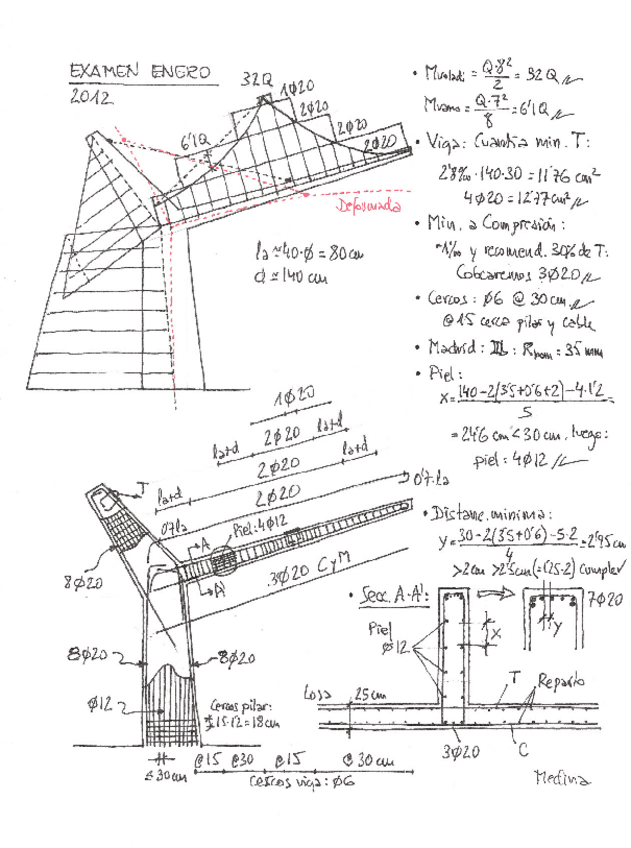 EXAMEN ENERO
2012
32Q
1Ø20
2Ø20
2Ø20
2Ø20
6'1Q
Deformada
la ≃ 40·Ø = 80 cm
d ≃ 140 cm
• Mvoladi = Q·8²/2 = 32Q
Mvano = Q·7²/8 = 6'1Q
• Viga: Cuantía min. T:
2'8‰·140·30 = 11'76 cm²
4Ø20 = 12'77 cm²
• Min. a Compresión:
~1‰ y recomend. 30% de T:
Colocaremos 3Ø20
• Cercos: Ø6 @ 30 cm.
@15 cerca pilar y cable
• Madrid: IIb: Rnom = 35 mm
• Piel:
X = 140-2(3'5+0'6+2)-4·1'2/5 =
= 24'6 cm < 30 cm. luego:
piel: 4Ø12
1Ø20
la+d
2Ø20
la+d
2Ø20
la+d
2Ø20
0'7·la
T
0'7la
A
Piel: 4Ø12
A'
3Ø20 CyM
8Ø20
8Ø20
8Ø20
Ø12
Cercos pilar:
15·12 = 18 cm
≤ 30 cm
@15
@30
@15
@30 cm
Cercos viga: Ø6
• Distanc. minima:
y = 30-2(3'5+0'6)-5·2/4 = 2'95 cm
>2 cm >2'5 cm (=1'25·2) cumple
• Secc. A-A':
7Ø20
Piel
Ø12
X
y
Losa
25 cm
T
Reparto
3Ø20
C
Medina